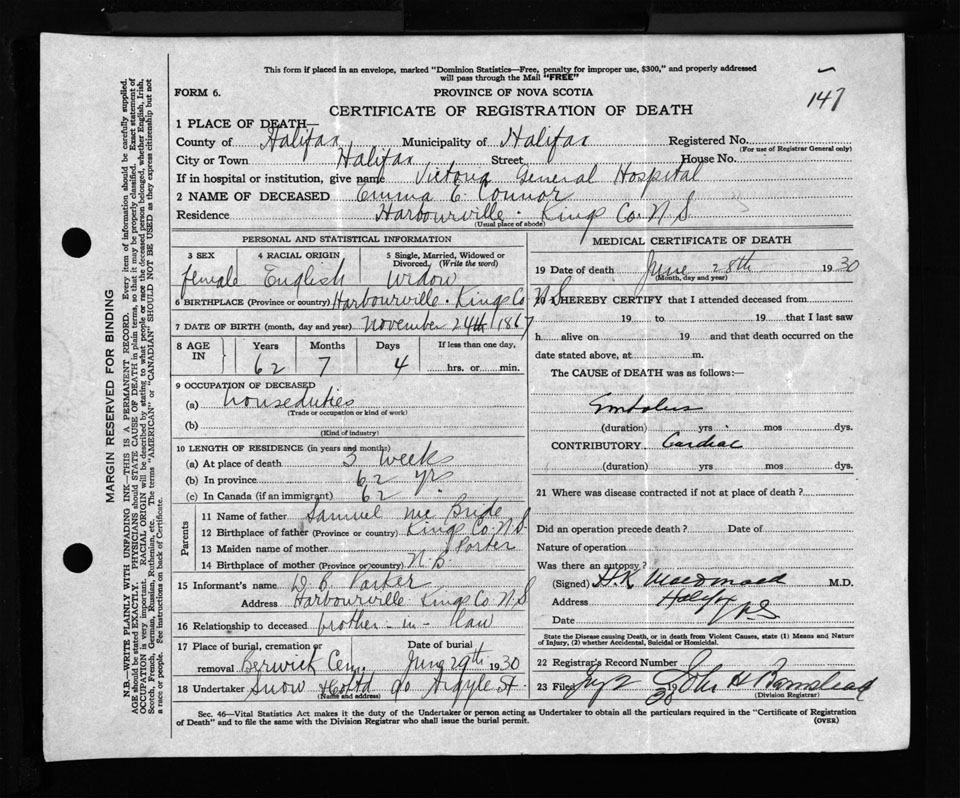 This form if placed in an envelope, marked "Dominion Statistics—Free, penalty for improper use, $300," and properly addressed
will pass through the Mail "FREE"
FORM 6.
PROVINCE OF NOVA SCOTIA
147
CERTIFICATE OF REGISTRATION OF DEATH
1 PLACE OF DEATH—
County of Halifax Municipality of Halifax Registered No.
(For use of Registrar General only)
City or Town Halifax Street House No.
If in hospital or institution, give name Victoria General Hospital
2 NAME OF DECEASED Emma E. Connor
Residence Harbourville. Kings Co. N.S.
(Usual place of abode)
PERSONAL AND STATISTICAL INFORMATION
3 SEX female
4 RACIAL ORIGIN English
5 Single, Married, Widowed or Divorced. (Write the word) Widow
6 BIRTHPLACE (Province or country) Harbourville. Kings Co N.S
7 DATE OF BIRTH (month, day and year) November 24th 1867
8 AGE IN Years 62 Months 7 Days 4 If less than one day, hrs. or min.
9 OCCUPATION OF DECEASED
(a) houseduties
(Trade or occupation or kind of work)
(b)
(Kind of industry)
10 LENGTH OF RESIDENCE (in years and months)
(a) At place of death 3 weeks
(b) In province 62 yrs
(c) In Canada (if an immigrant) 62
Parents
11 Name of father Samuel Mc Bride
12 Birthplace of father (Province or country) Kings Co. N.S.
13 Maiden name of mother Porter
14 Birthplace of mother (Province or country) N.B.
15 Informant's name D. B. Parker
Address Harbourville Kings Co N.S
16 Relationship to deceased brother-in-law
17 Place of burial, cremation or removal Berwick Cem. Date of burial June 29th 1930
18 Undertaker Snow & Co Ltd 90 Argyle St.
(Name and address)
MEDICAL CERTIFICATE OF DEATH
19 Date of death June 28th 1930
(Month, day and year)
20 I HEREBY CERTIFY that I attended deceased from
19 to 19 that I last saw
h alive on 19 and that death occurred on the
date stated above, at m.
The CAUSE of DEATH was as follows:—
Embolus
(duration) yrs mos dys.
CONTRIBUTORY Cardiac
(duration) yrs. mos dys.
21 Where was disease contracted if not at place of death?
Did an operation precede death? Date of
Nature of operation
Was there an autopsy?
(Signed) H.K. Macdonald M.D.
Address Halifax
Date N.S.
State the Disease causing Death, or in death from Violent Causes, state (1) Means and Nature
of Injury, (2) whether Accidental, Suicidal or Homicidal.
22 Registrar's Record Number
23 Filed July 2 30 John H Barnstead
(Division Registrar)
Sec. 46—Vital Statistics Act makes it the duty of the Undertaker or person acting as Undertaker to obtain all the particulars required in the "Certificate of Registration
of Death" and to file the same with the Division Registrar who shall issue the burial permit.
(OVER)
MARGIN RESERVED FOR BINDING
N.B.—WRITE PLAINLY WITH UNFADING INK—THIS IS A PERMANENT RECORD. Every item of information should be carefully supplied.
AGE should be stated EXACTLY. PHYSICIANS should STATE CAUSE OF DEATH in plain terms, so that it may be properly classified. Exact statement of
OCCUPATION is very important. RACIAL ORIGIN will be described by stating to what people or race the deceased person belonged, whether English, Irish,
Scotch, French, German, Russian, Ruthenian, etc. The terms "AMERICAN" or "CANADIAN" SHOULD NOT BE USED as they express citizenship but not
a race or people. See instructions on back of Certificate.